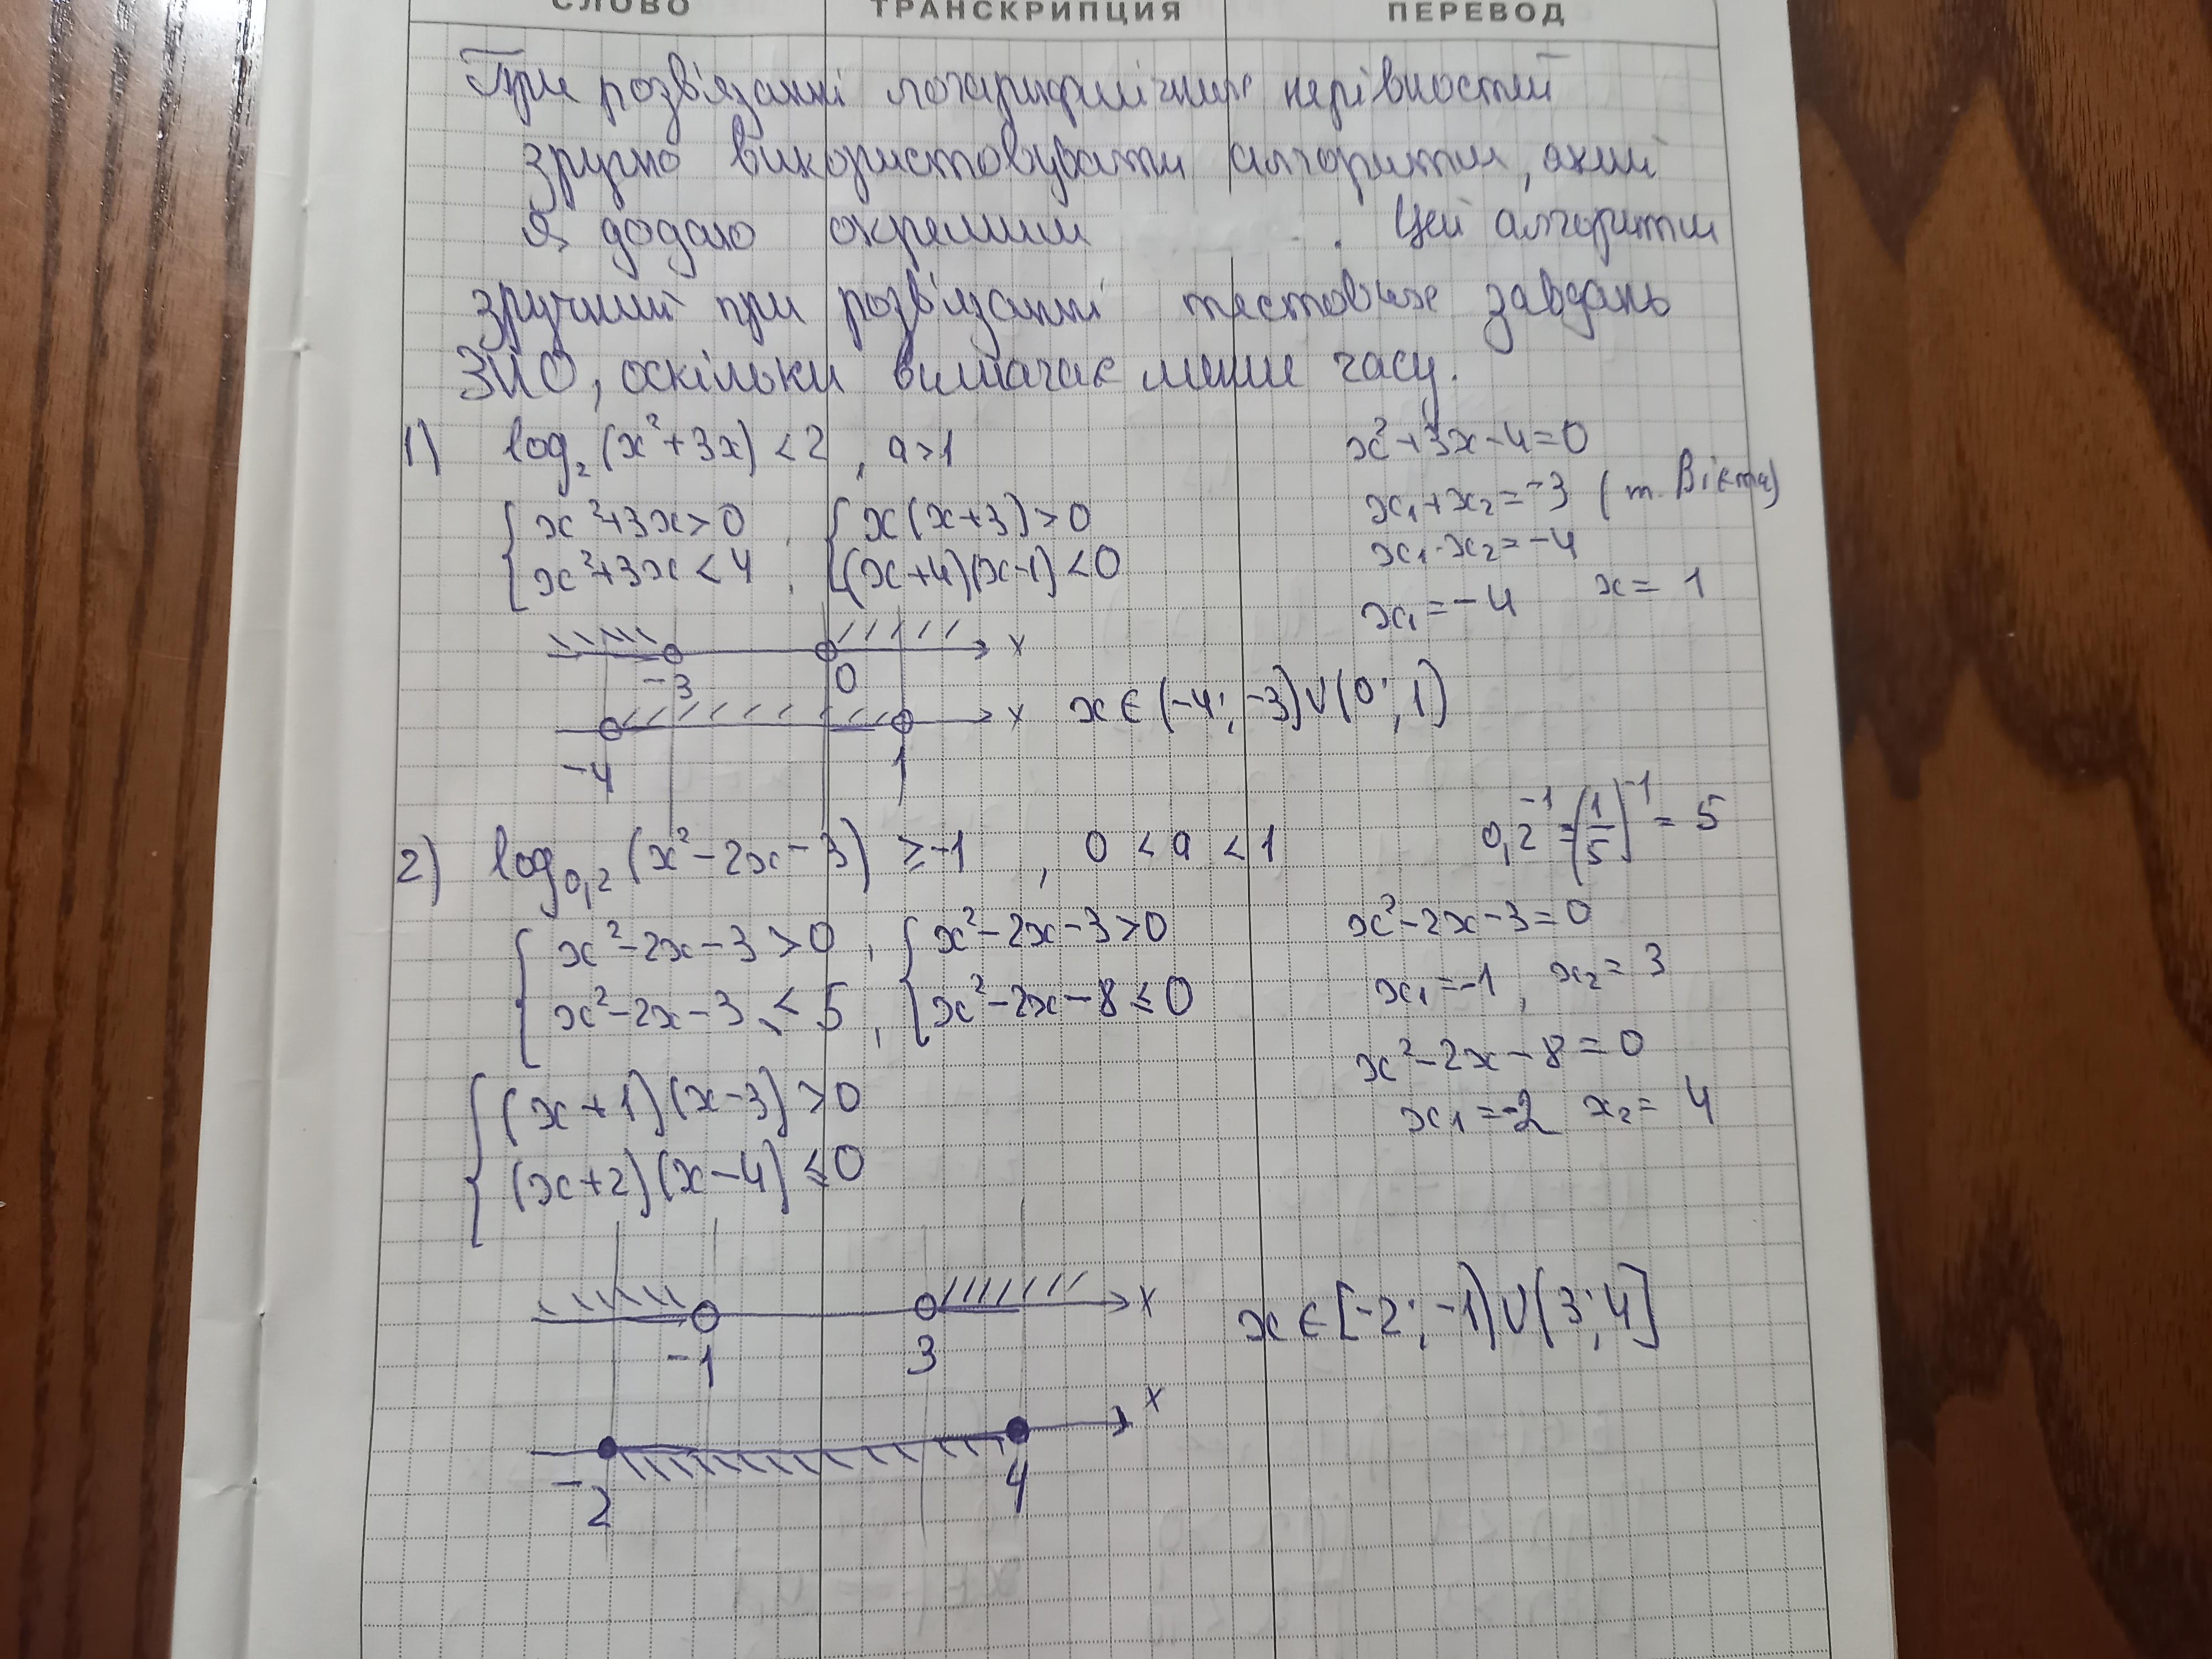 СЛОВО ТРАНСКРИПЦИЯ ПЕРЕВОД
При розв'язанні логарифмічних нерівностей
зручно використовувати алгоритм, який
я додаю окремим . Цей алгоритм
зручний при розв'язанні тестових завдань
ЗНО, оскільки вимагає менше часу.
1) log₂(x²+3x)<2, a>1
x²+3x-4=0
{x²+3x>0, {x(x+3)>0
x₁+x₂=-3 (т. Вієта)
{x²+3x<4, {(x+4)(x-1)<0
x₁·x₂=-4
x₁=-4 x=1
x
-3 0
x x∈(-4;-3)∪(0;1)
-4 1
2) log₀,₂(x²-2x-3)≥-1, 0<a<1
0,2⁻¹=(1/5)⁻¹=5
{x²-2x-3>0, {x²-2x-3>0
x²-2x-3=0
{x²-2x-3≤5, {x²-2x-8≤0
x₁=-1, x₂=3
x²-2x-8=0
{(x+1)(x-3)>0
x₁=-2 x₂=4
{(x+2)(x-4)≤0
x x∈[-2;-1)∪(3;4]
-1 3
x
-2 4